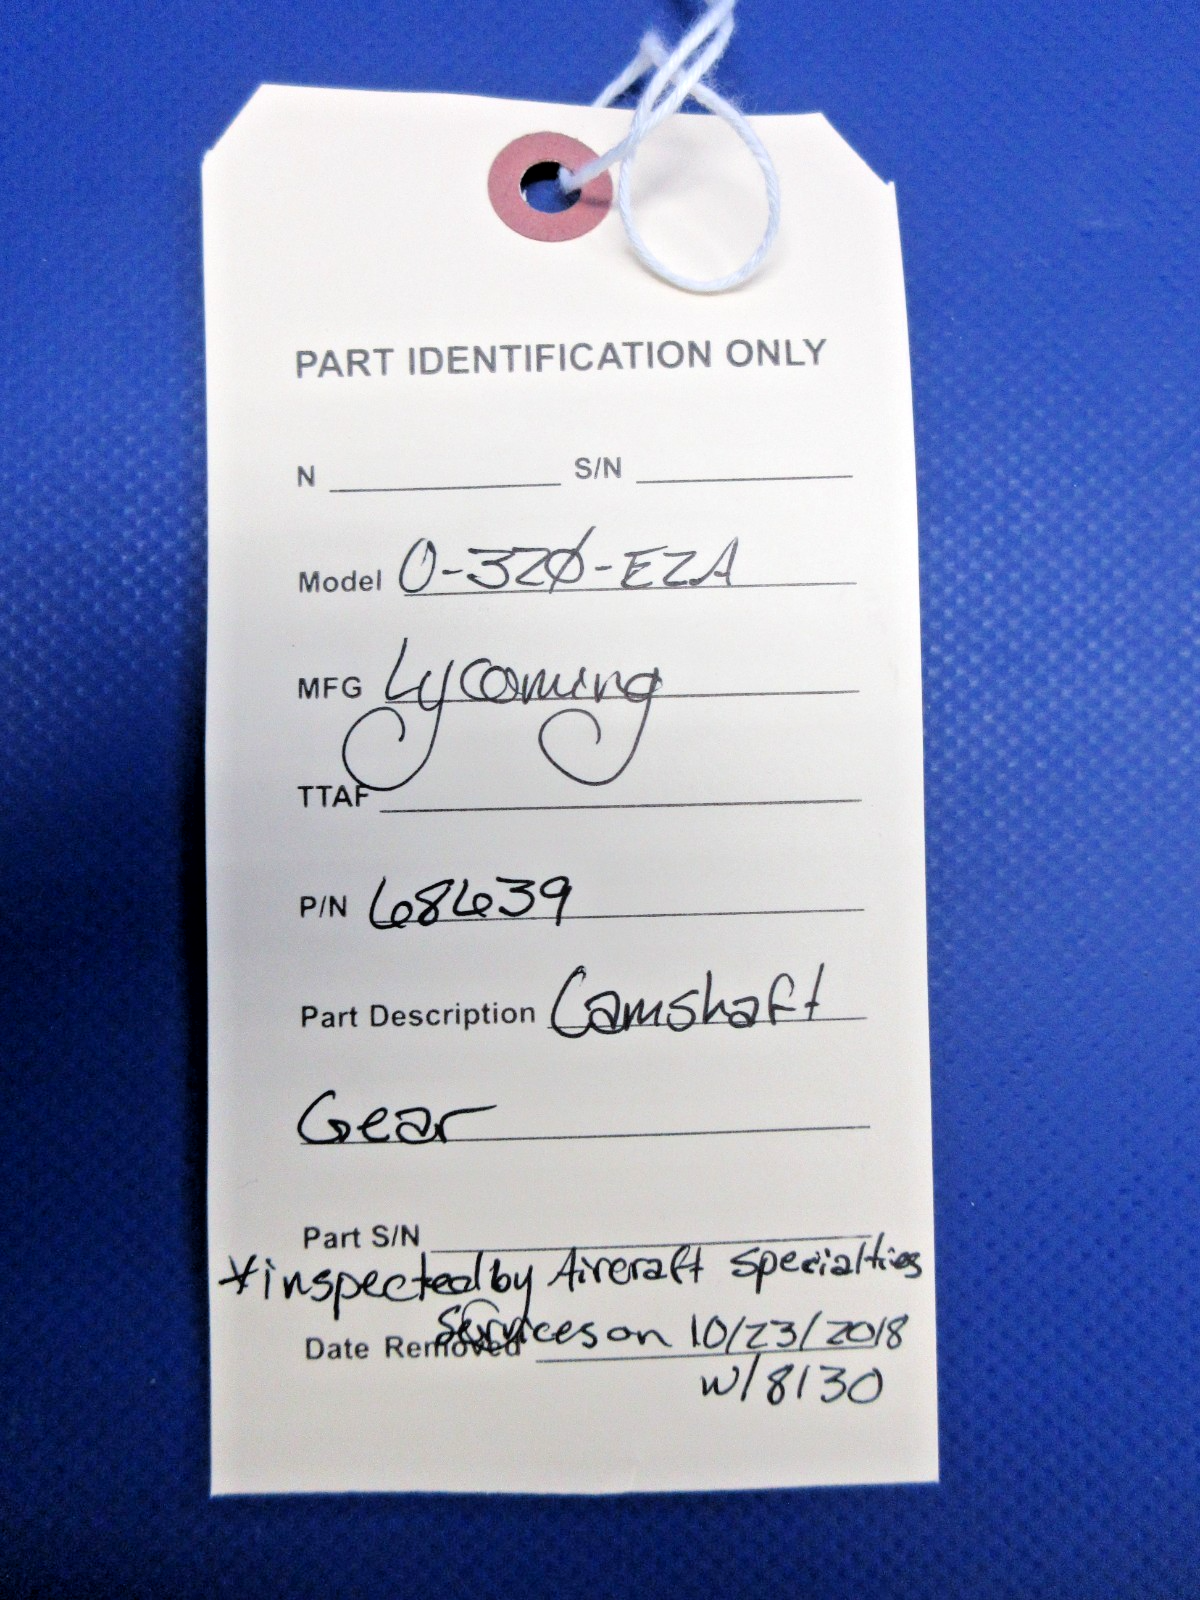 PART IDENTIFICATION ONLY
N S/N
Model O-320-E2A
MFG Lycoming
TTAF
P/N 68639
Part Description Camshaft
Gear
Part S/N
*inspected by Aircraft Specialties
Services on 10/23/2018
Date Removed
w/8130